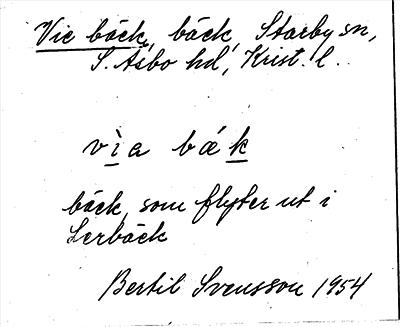 Vie bäck, bäck, Starby sn,
S. Åsbo hd, Krist. l.
vìa bæk
bäck, som flyter ut i
Lerbäck
Bertil Svensson 1954